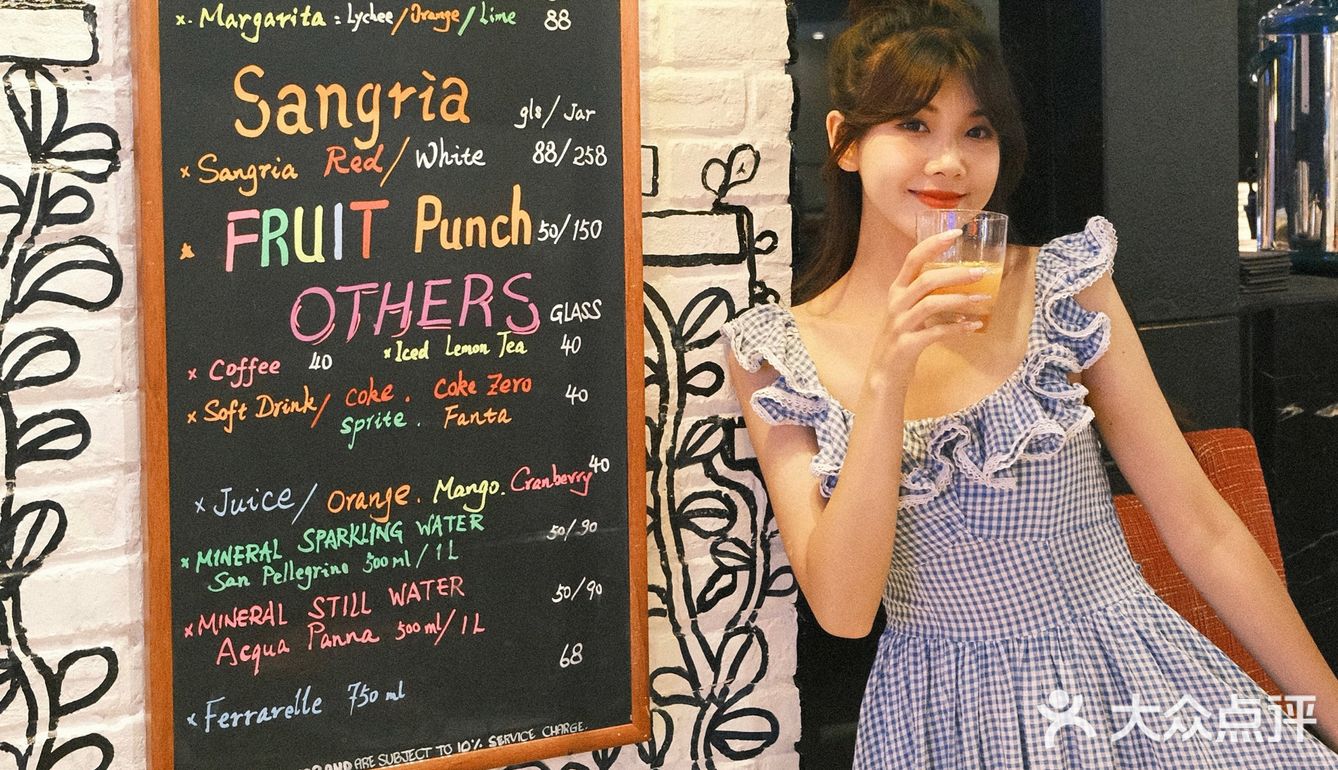 x. Margarita : Lychee/Orange/Lime 88
Sangria gls/Jar
x Sangria Red/White 88/258
x FRUIT Punch 50/150
OTHERS GLASS
x Coffee 40 x Iced Lemon Tea 40
x Soft Drink/ Coke. Coke Zero 40
Sprite. Fanta
x Juice/ Orange. Mango. Cranberry 40
x MINERAL SPARKLING WATER 50/90
San Pellegrino 500 ml/1L
x MINERAL STILL WATER 50/90
Acqua Panna 500 ml/1L
68
x Ferrarelle 750 ml
ARE SUBJECT TO 10% SERVICE CHARGE.
大众点评